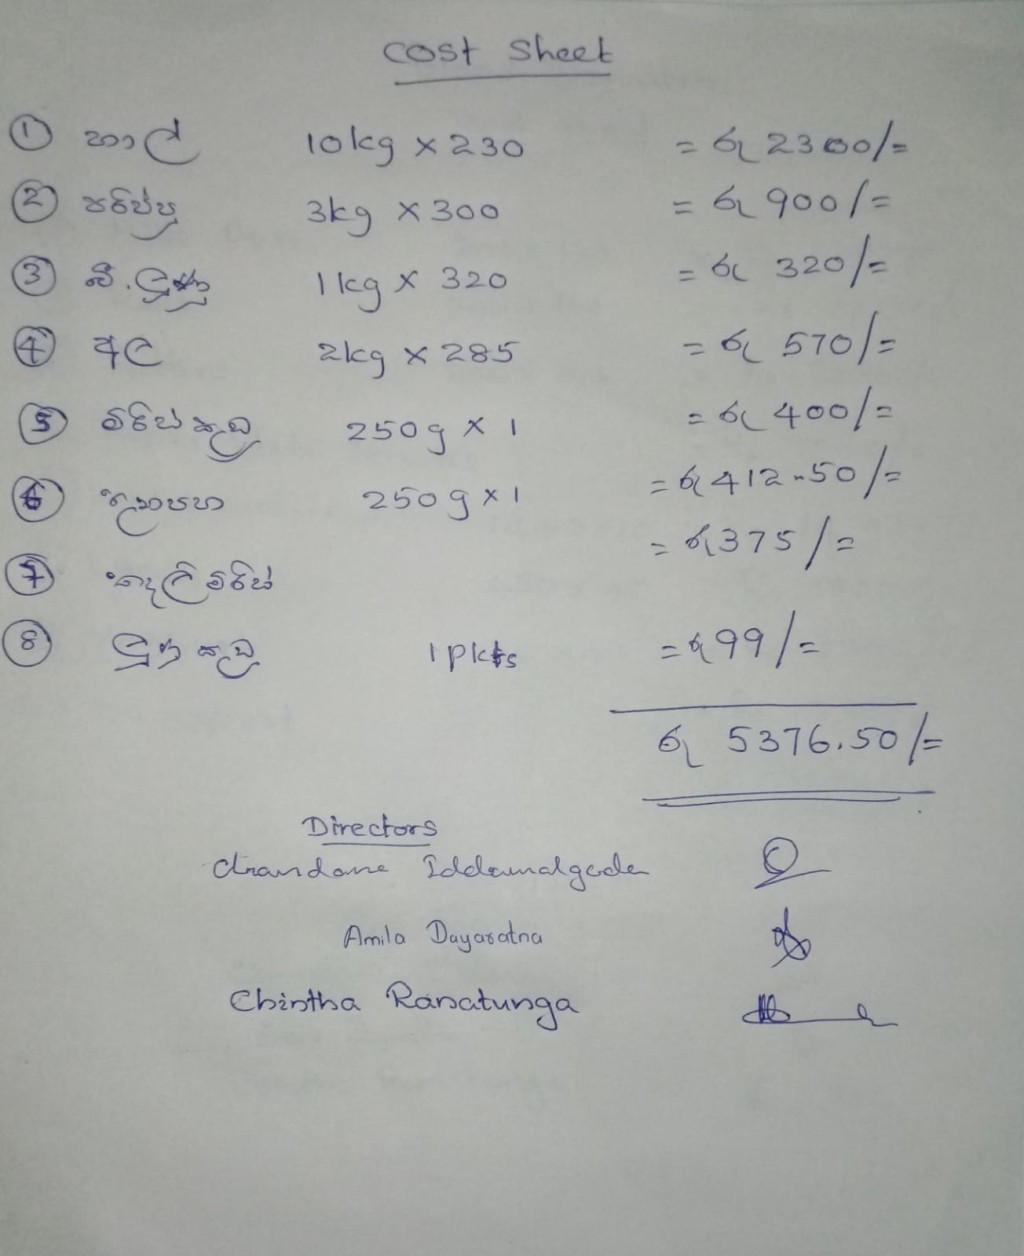 Cost Sheet
① හාල් 10kg x 230 = රු 2300/=
② පරිප්පු 3kg x 300 = රු 900/=
③ බී.ලූණු 1kg x 320 = රු 320/=
④ අල 2kg x 285 = රු 570/=
⑤ මිරිස් කුඩු 250g x 1 = රු 400/=
⑥ තුනපහ 250g x 1 = රු 412.50/=
⑦ කෑලි මිරිස් = රු 375/=
⑧ ලුණු කුඩු 1 pkts = රු 99/=
රු 5376.50/=
Directors
Chandana Iddamalgoda
Amila Dayaratna
Chintha Ranatunga